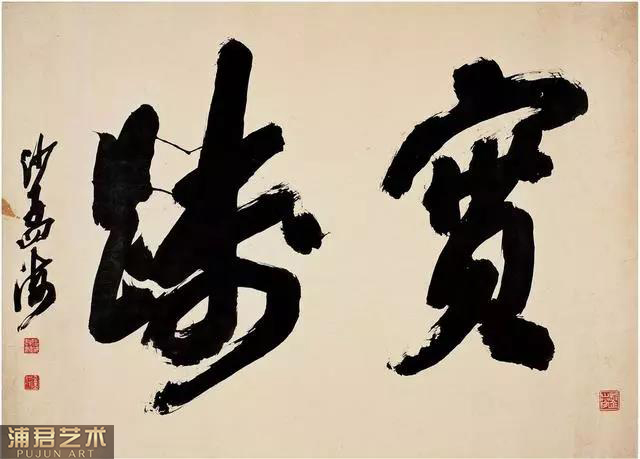 實踐
沙孟海
浦君艺术
PUJUN ART